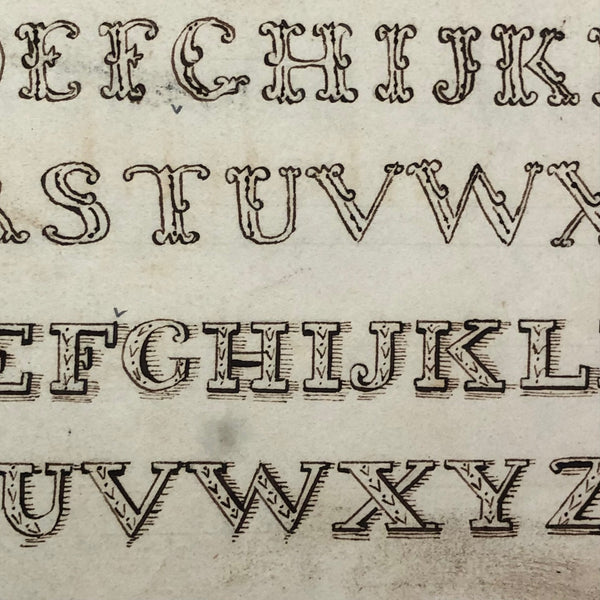 DEFGHIJK
RSTUVWX
EFGHIJKL
UVWXYZ